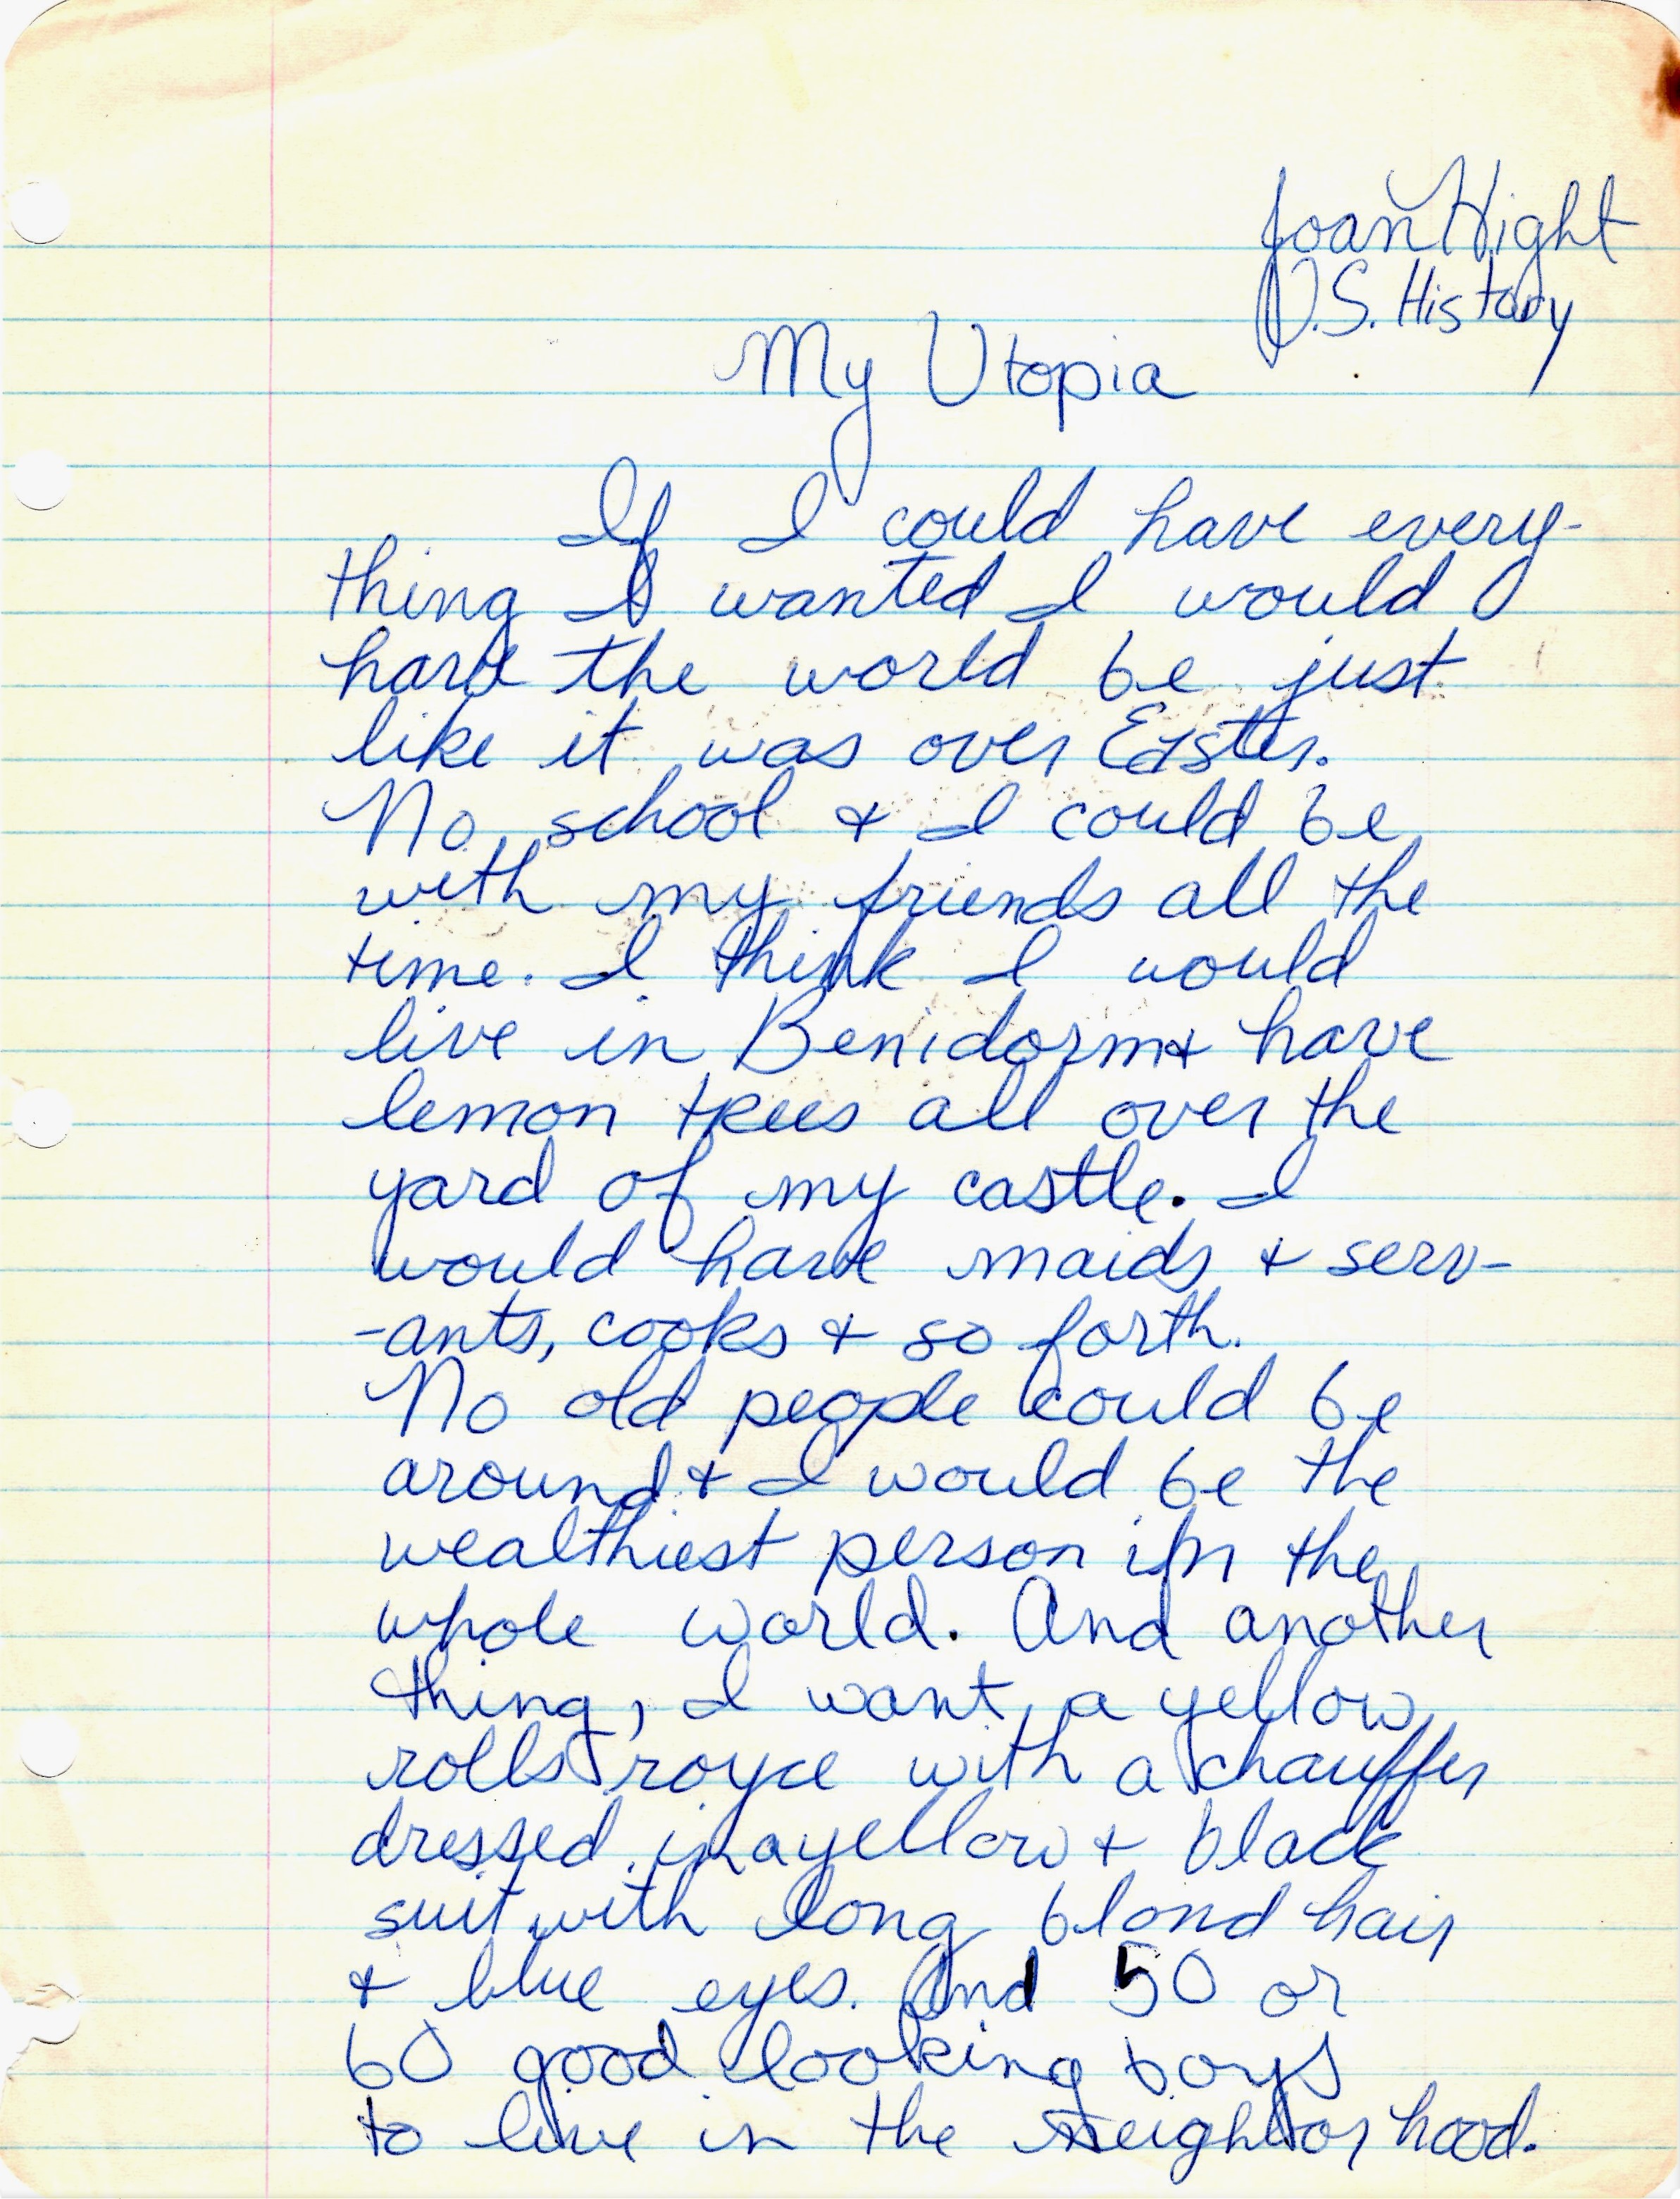 Joan Hight
U.S. History
My Utopia
If I could have every-
thing I wanted I would
have the world be just
like it was over Easter.
No school & I could be
with my friends all the
time. I think I would
live in Benidorm & have
lemon trees all over the
yard of my castle. I
would have maids & serv-
-ants, cooks & so forth.
No old people could be
around & I would be the
wealthiest person in the
whole world. And another
thing, I want a yellow
rolls royce with a chauffer
dressed in a yellow & black
suit with long blond hair
& blue eyes. And 50 or
60 good looking boys
to live in the neighborhood.